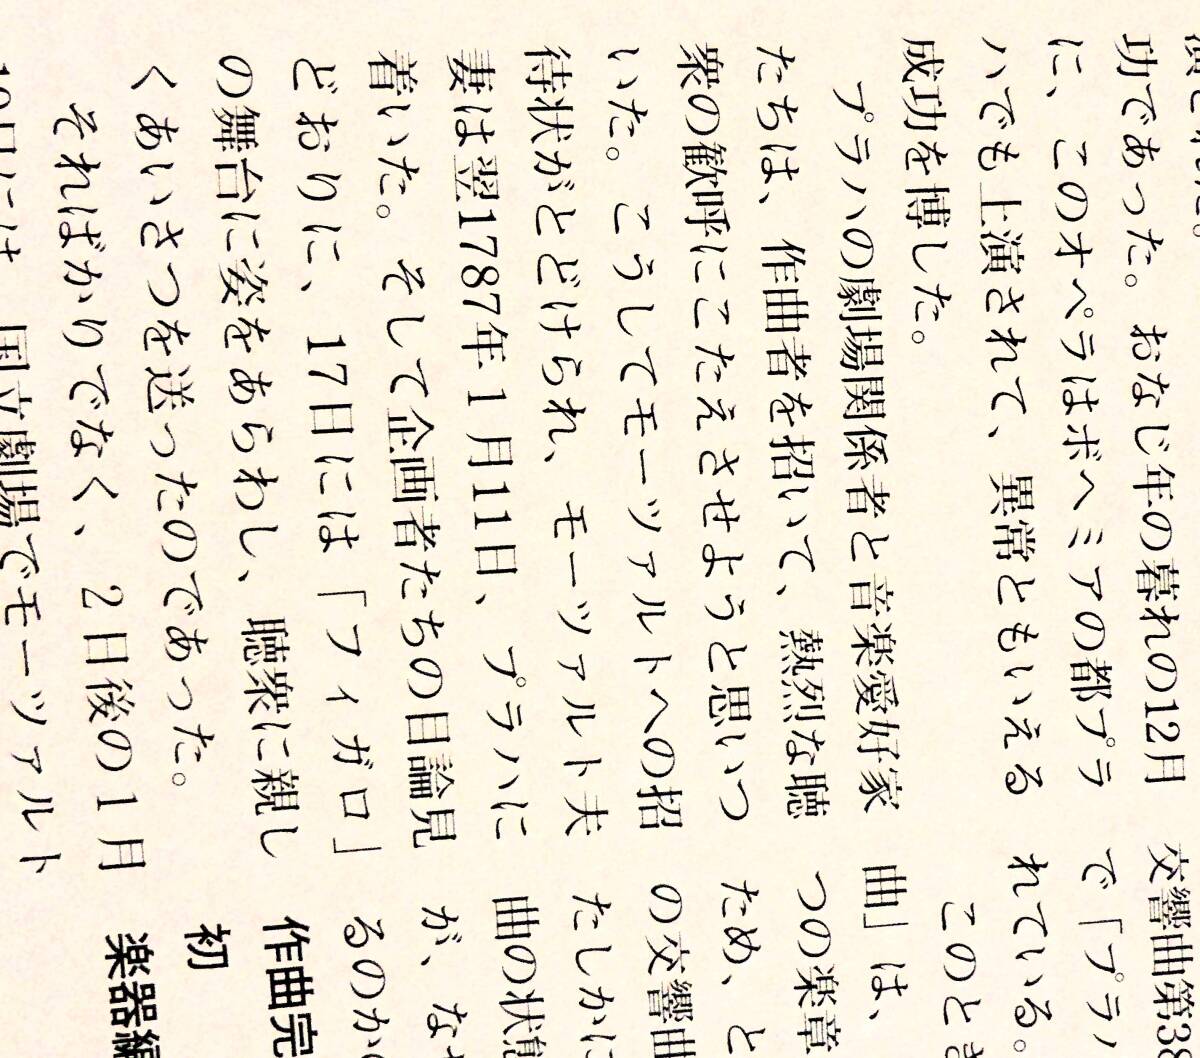 功であった。おなじ年の暮れの12月
に、このオペラはボヘミアの都プラ
ハでも上演されて、異常ともいえる
成功を博した。
プラハの劇場関係者と音楽愛好家
たちは、作曲者を招いて、熱烈な聴
衆の歓呼にこたえさせようと思いつ
いた。こうしてモーツァルトへの招
待状がとどけられ、モーツァルト夫
妻は翌1787年1月11日、プラハに
着いた。そして企画者たちの目論見
どおりに、17日には「フィガロ」
の舞台に姿をあらわし、聴衆に親し
くあいさつを送ったのであった。
そればかりでなく、2日後の1月
19日には、国立劇場でモーツァルト
交響曲第38
で「プラハ
れている。
このとき
曲」は、
つの楽章
ため、と
の交響曲
たしかに
曲の状態
が、なぜ
るのか
作曲完
初
楽器編